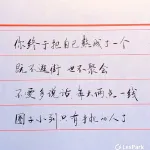 你终于把自己熬成了一个
既不逛街 也不聚会
不爱多说话 每天两点一线
圈子小到只有手机的人了
LeaPark